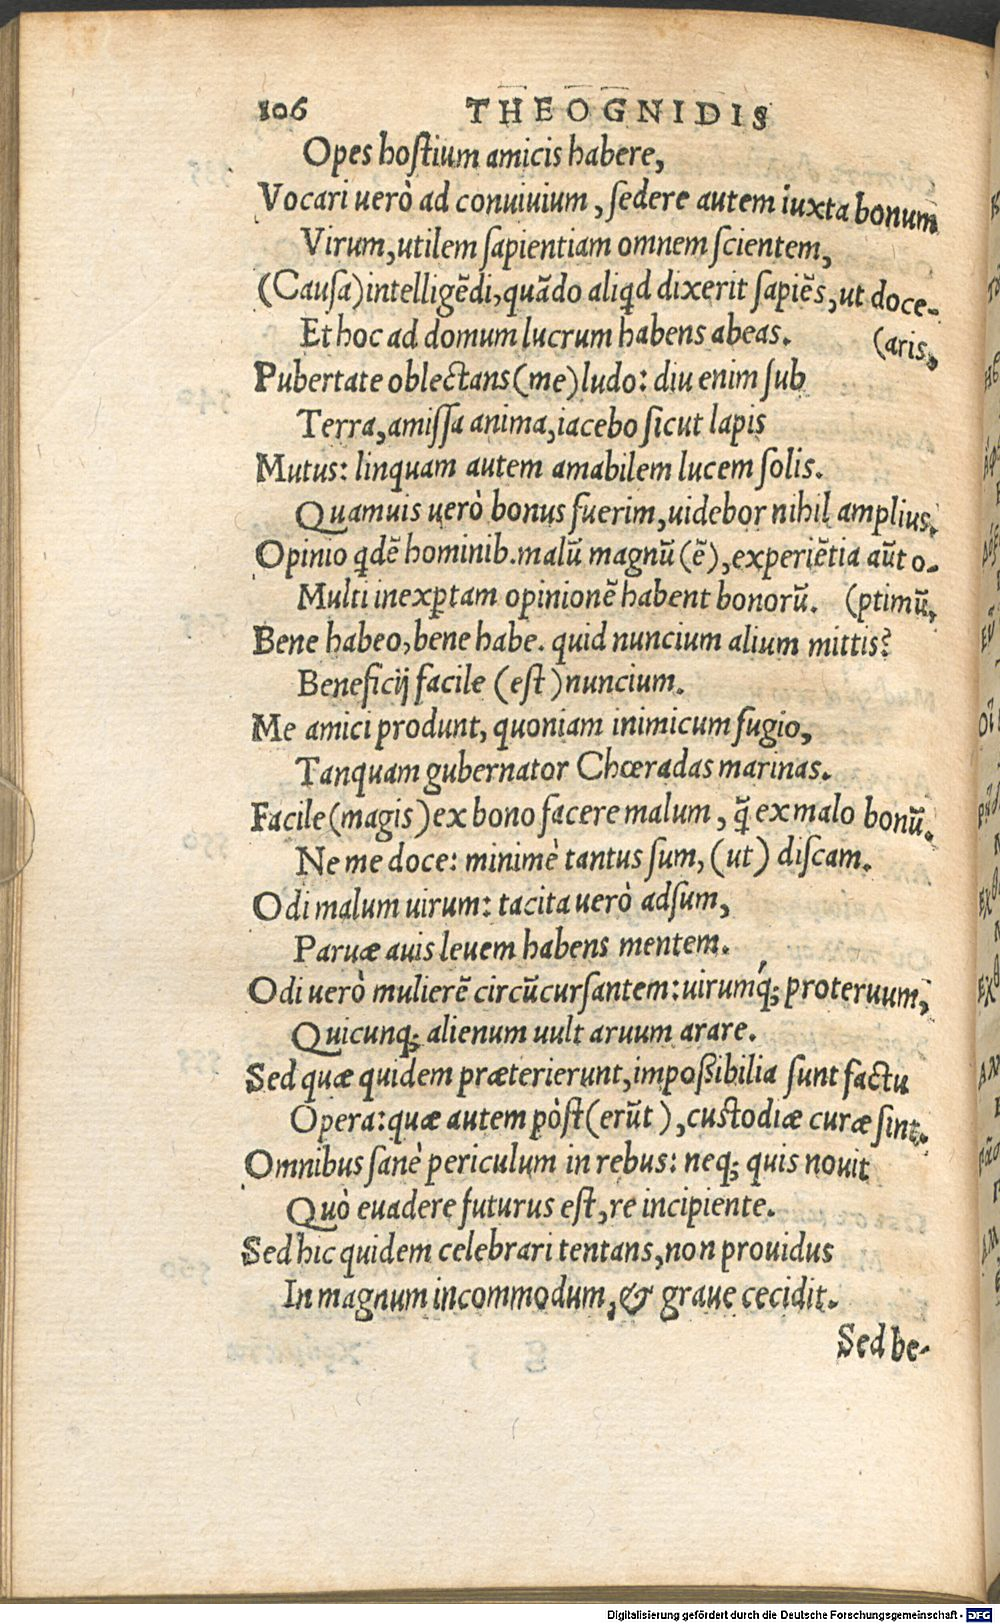 106 THEOGNIDIS
Opes hostium amicis habere,
Vocari uerò ad conuiuium, sedere autem iuxta bonum
Virum, utilem sapientiam omnem scientem,
(Causa) intelligēdi, quādo aliqd dixerit sapiēs, ut doce-
Et hoc ad domum lucrum habens abeas. (aris,
Pubertate oblectans (me) ludo: diu enim sub
Terra, amissa anima, iacebo sicut lapis
Mutus: linquam autem amabilem lucem solis.
Quamuis uerò bonus fuerim, uidebor nihil amplius.
Opinio qdē hominib. malū magnū (ē), experiētia aūt o-
Multi inexptam opinionē habent bonorū. (ptimū,
Bene habeo, bene habe. quid nuncium alium mittis?
Beneficij facile (est) nuncium.
Me amici produnt, quoniam inimicum fugio,
Tanquam gubernator Chœradas marinas.
Facile (magis) ex bono facere malum, q̃ ex malo bonū.
Ne me doce: minimè tantus sum, (ut) discam.
Odi malum uirum: tacita uerò adsum,
Paruæ auis leuem habens mentem.
Odi uerò mulierē circūcursantem: uirumq́; proteruum,
Quicunq; alienum uult aruum arare.
Sed quæ quidem præterierunt, impoßibilia sunt factu
Opera: quæ autem pòst (erūt), custodiæ curæ sint.
Omnibus sanè periculum in rebus: neq; quis nouit
Quò euadere futurus est, re incipiente.
Sed hic quidem celebrari tentans, non prouidus
In magnum incommodum, & graue cecidit.
Sed be-
Digitalisierung gefördert durch die Deutsche Forschungsgemeinschaft - DFG